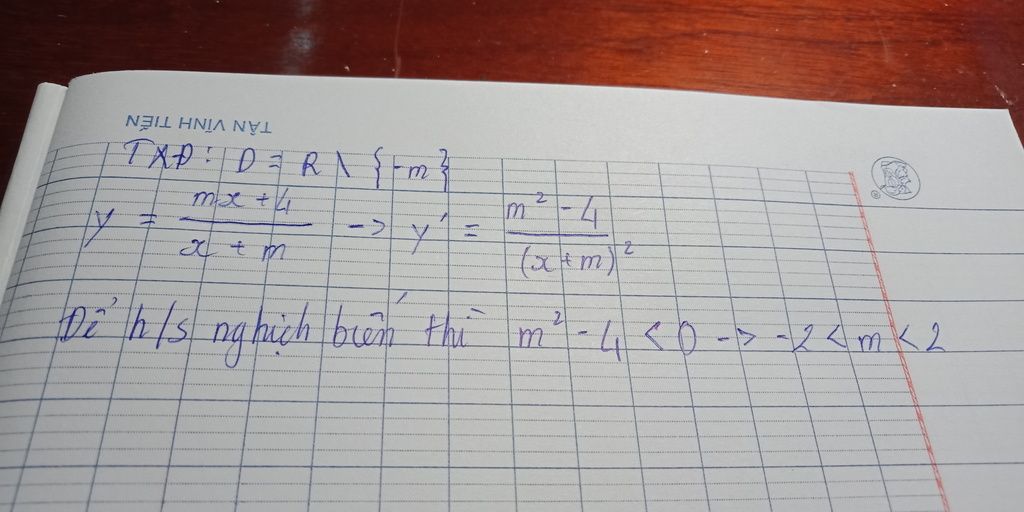 TÂN VĨNH TIẾN
TXĐ: D = R \ {-m}
y = \frac{mx+4}{x+m} -> y' = \frac{m² - 4}{(x+m)²}
Để h/s nghịch biến thì m² - 4 < 0 -> -2 < m < 2